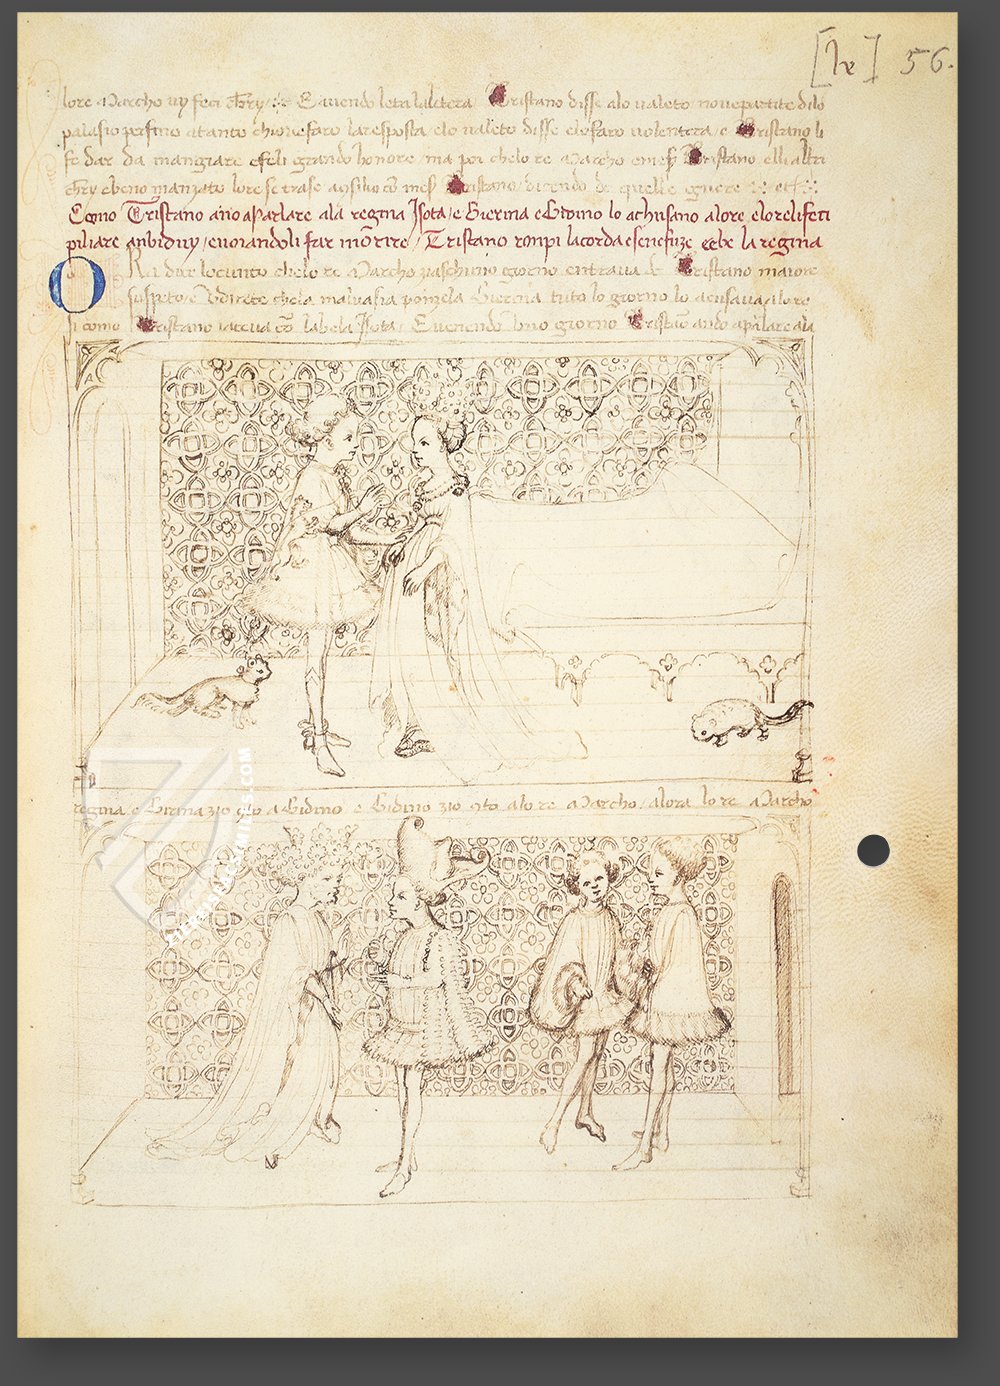 [lv] 56.
lore Marcho uy feci chry E avendo leta la letera Tristano disse alo valeto no ve partite dilo
palasio per fino a tanto chio ve faro la resposta elo valeto disse elo faro volentera e Tristano li
fe dar da mangiare e feli grando honore ma poi chelo re Marcho e mes Tristano elli altri
chry ebeno manzato lo re se trase a misier Tristano dicendo de quelle
Como Tristano ano aparlare ala regina Isota e Gierina e Gidino lo achusano alore elore li feci
piliare anbiduy e uoiandoli far morire Tristano ronpi la corda e sene fuze e ebe la regina
O Ra dixe lo cunto chelo re Marcho ziaschuno gorno entrava de Tristano maiore
suspeto e Vdirete chela malvasia pomzela Gierina tuto lo giorno lo acusava alo re
si como Tristano iaceva co la bela Isota E venendo uno giorno Tristano ando a parlare ala
regina e Girina zio qto a Gidino e Gidino zio qto alo re Marcho alora lo re Marcho